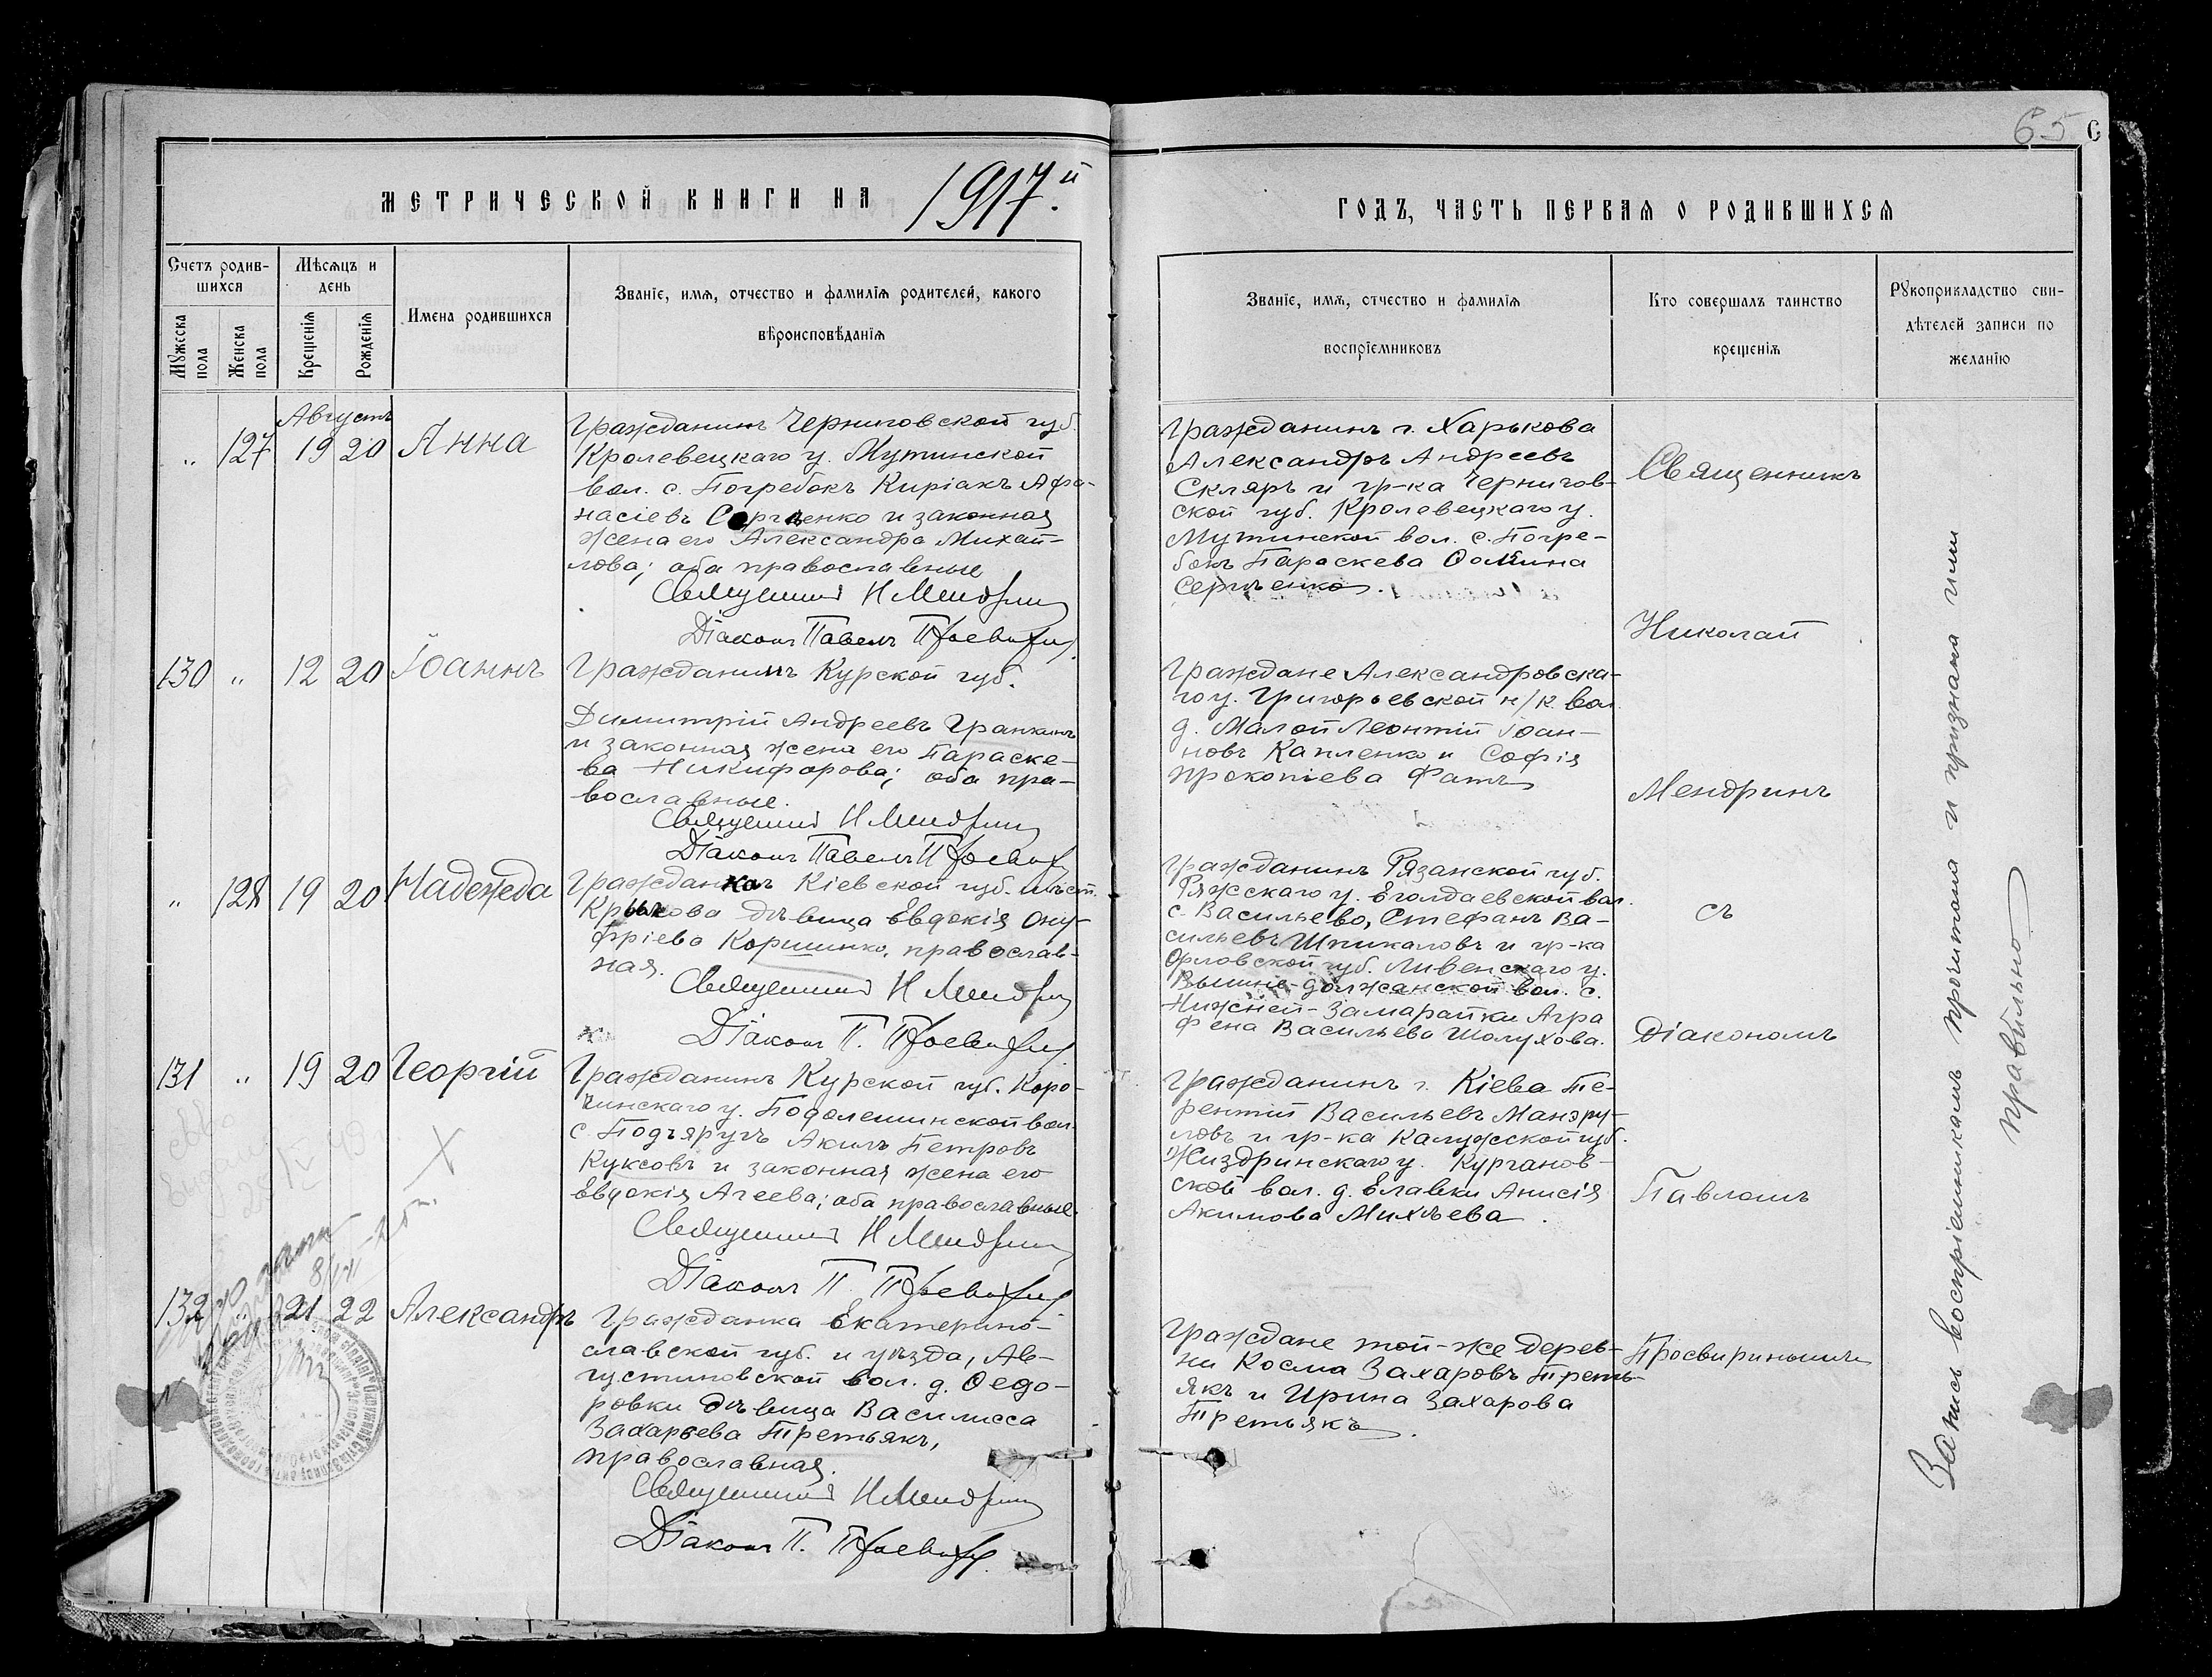 65
С
МЕТРИЧЕСКОЙ КНИГИ НА 1917й
ГОДЪ, ЧАСТЬ ПЕРВАЯ О РОДИВШИХСЯ
Счетъ родив-
шихся
Мужеска
пола
Женска
пола
Мѣсяцъ и
день
Крещенія
Рожденія
Имена родившихся
Званіе, имя, отчество и фамилія родителей, какого
вѣроисповѣданія
Званіе, имя, отчество и фамилія
воспріемниковъ
Кто совершалъ таинство
крещенія
Рукоприкладство сви-
дѣтелей записи по
желанію
Августъ
" 127 19 20 Анна
Гражданинъ Черниговской губ.
Кролевецкаго у. Мутинской
вол. с. Погребокъ Киріакъ Афа-
насіевъ Сергѣенко и законная
жена его Александра Михай-
лова; оба православные
Священникъ Н Мендринъ
Діаконъ Павелъ
Гражданинъ г. Харькова
Александръ Андреевъ
Скляръ и гр-ка Чернигов-
ской губ. Кролевецкаго у.
Мутинской вол. с. Погре-
бокъ Параскева Ѳомина
Сергѣенко.
130 " 12 20 Іоаннъ
Гражданинъ Курской губ.
Димитрій Андреевъ Гранкинъ
и законная жена его Параске-
ва Никифорова; оба пра-
вославные.
Священникъ Н Мендринъ
Діаконъ Павелъ
Граждане Александровска-
го у. Григорьевской н/к вол.
д. Малой Леонтій Іоан-
новъ Капленко и Софія
Прокопіева Фатъ
" 128 19 20 Надежда
Гражданка Кіевской губ. мѣст.
Крылова дѣвица Евдокія Ону-
фріева Коршинко, православ-
ная.
Священникъ Н Мендринъ
Діаконъ П.
Гражданинъ Рязанской губ.
Ряжскаго у. Еголдаевской вол.
с. Васильево, Стефанъ Ва-
сильевъ Шпикаловъ и гр-ка
Орловской губ. Ливенскаго у.
Вышне-Должанской вол. с.
Нижней-Замарайки Агра
фена Васильева Шолухова.
131 " 19 20 Георгій
Гражданинъ Курской губ. Коро-
чинскаго у. Подолешинской вол.
с. Подъяругъ Акимъ Петровъ
Куксовъ и законная жена его
Евдокія Агеева; оба православные.
Священникъ Н Мендринъ
Діаконъ П.
Гражданинъ г. Кіева Те-
рентій Васильевъ
и гр-ка Калужской губ.
Жиздринскаго у. Курганов-
ской вол. д. Елавки Анисія
Акимова Михѣева.
132 21 22 Александръ
Гражданка Екатерино-
славской губ. и уѣзда, Ав-
густиновской вол. д. Ѳедо-
ровки дѣвица Василисса
Захарьева Третьякъ,
православная.
Священникъ Н Мендринъ
Діаконъ П.
Граждане той-же дерев-
ни Косма Захаровъ Треть-
якъ и Ирина Захарова
Третьякъ.
Священникъ
Николай
Мендринъ
съ
Діакономъ
Павломъ
Просвиринымъ
Запись воспріемникамъ прочитана и признана ими
правильною